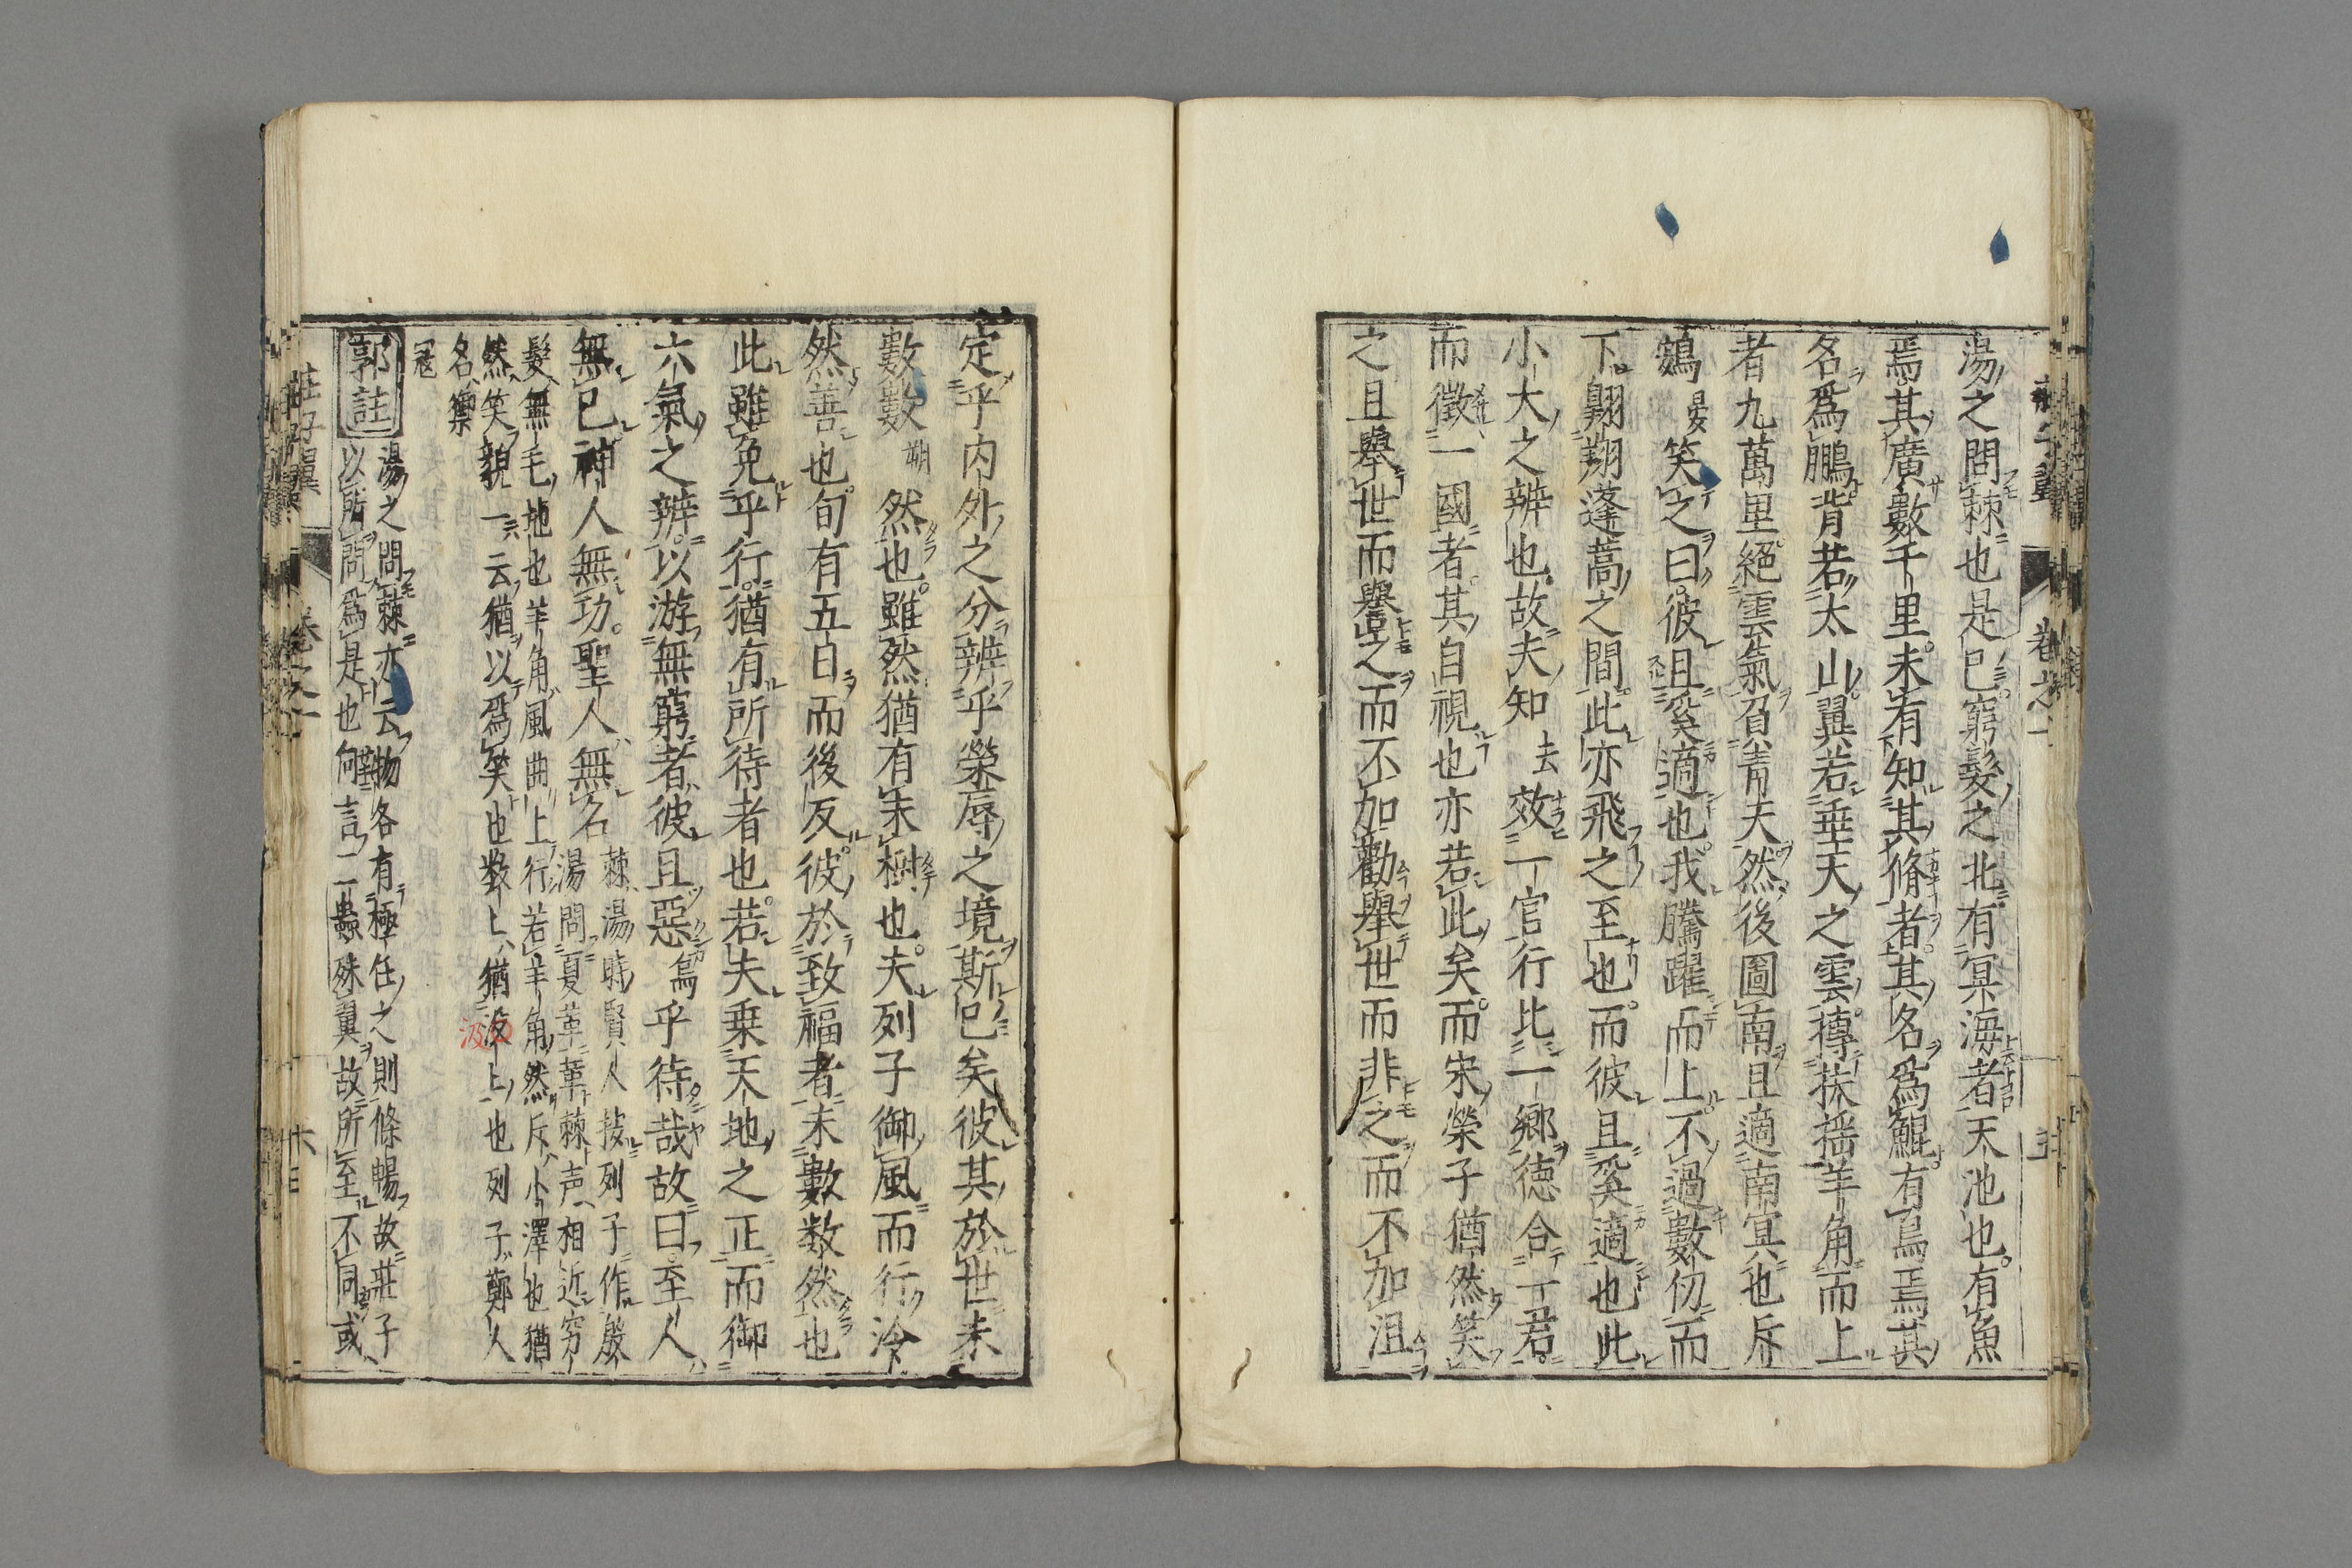 湯之問棘也是已。窮髮之北有冥海者天池也。有魚
焉其廣數千里。未有知其脩者。其名爲鯤。有鳥焉其
名爲鵬背若太山。翼若垂天之雲。摶扶揺羊角而上
者九萬里。絕雲氣負青天然後圖南且適南冥也斥
鴳晏笑之曰。彼且奚適也。我騰躍而上。不過數仞而
下。翺翔蓬蒿之間。此亦飛之至也。而彼且奚適也此
小大之辨也。故夫知去效一官行比一鄉德合一君。
而徵一國者。其自視也亦若此矣。而宋榮子猶然笑
之且舉世而譽之而不加勸舉世而非之而不加沮
定乎内外之分辨乎榮辱之境斯已矣彼其於世未
數數朔然也。雖然猶有未樹也。夫列子御風而行泠
然善也。旬有五日而後反。彼於致福者未數数然也
此雖免乎行。猶有所待者也。若夫乗天地之正而御
六氣之辨。以游無窮者彼且惡烏乎待哉故曰至人
無己神人無功。聖人無名
棘湯時賢人按列子作殷
湯問夏革革棘声相近窮
髮無毛地也羊角風曲上行若羊角然斥小澤也猶
然笑貌一云猶以爲笑也数上猶汲上也列子鄭人
名禦
寇
郭註
湯之問棘亦云物各有極任之則條暢故莊子
以所問爲是也向言二蟲殊翼故所至不同或
莊子翼
卷之一
六
卷之一
五
汲